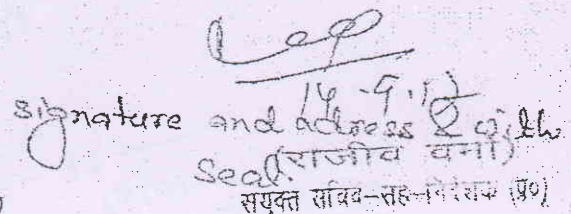 14.9.12
signature and address & with
seal.
(राजीव वर्मा)
संयुक्त सचिव-सह-निदेशक (प्र०)